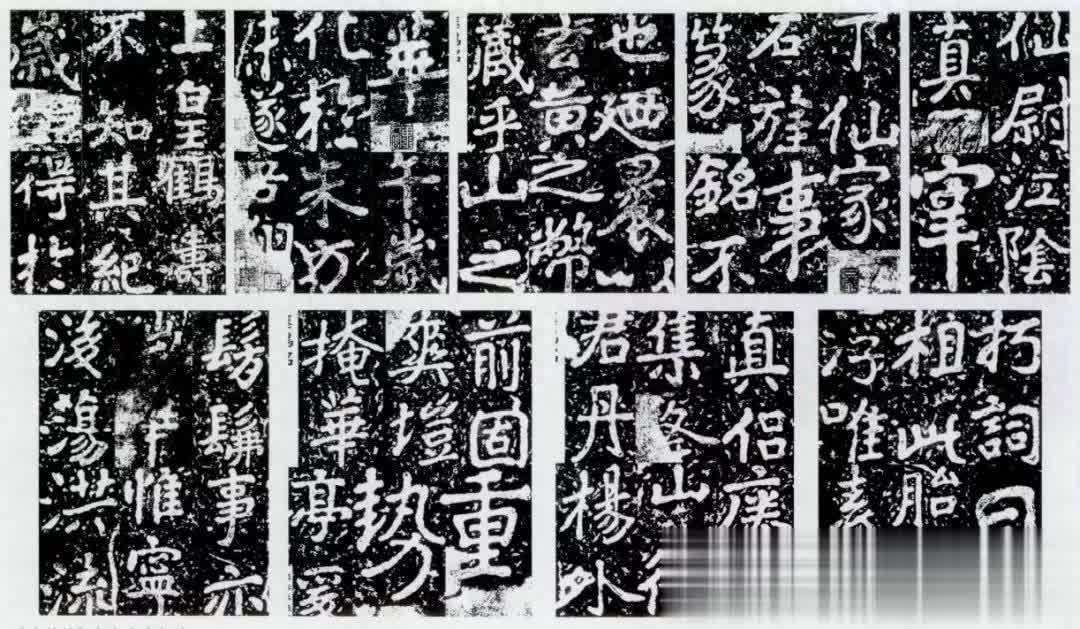 上皇鶴壽
不知其紀
歲得於
華午歲
化於朱方
未遂吾
也迺裹以
玄黃之幣
藏乎山之
下仙家
石旌事
篆銘不
仙尉江陰
真宰
髣髴事亦
惟寧
後蕩洪流
前固重
爽塏勢
掩華亭爰
真侶瘞
集山
君丹楊外
朽詞曰
相此胎
浮唯